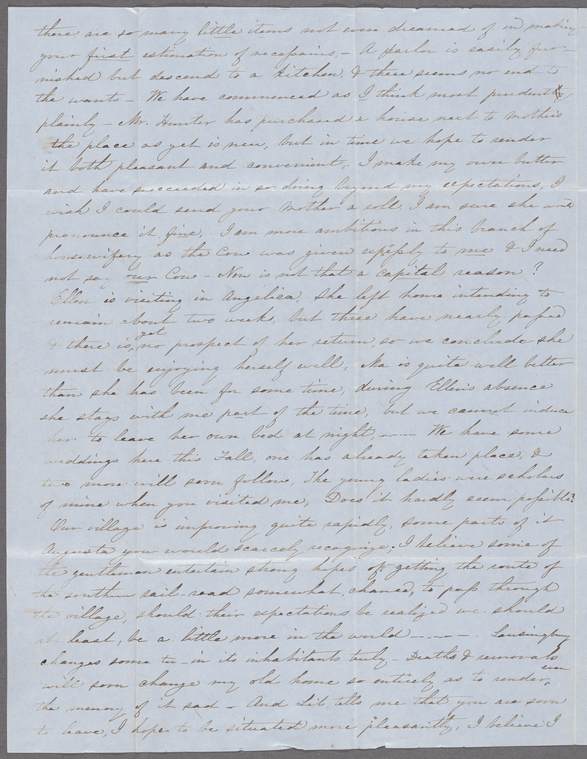 there are so many little items not even dreamed of in making
your first estimation of necessaries, – A parlor is easily fur-
nished but descend to a kitchen, & there seems no end to
the wants – We have commenced as I think most prudent &
plainly – Mr. Hunter has purchased a house next to Mothers
the place as yet is new, but in time we hope to render
it both pleasant and convenient, I make my own butter
and have succeeded in so doing beyond my expectations, I
wish I could send your Mother a roll, I am sure she would
pronounce it fine. I am more ambitious in this branch of
housewifery as the Cow was given expressly to me & I need
not say our Cow – Now is not that a capital reason?
Ellen is visiting in Angelica, she left home intending to
remain about two week, but three have nearly passed
& there is, yet no prospect of her return, so we conclude she
must be enjoying herself well, Ma is quite well better
than she has been for some time, during Ellens absence
she stays with me part of the time, but we cannot induce
her to leave her own bed at night, —— We have some
weddings here this Fall, one has already taken place, &
two more will soon follow, The young ladies were scholars
of mine when you visited me, Does it hardly seem possible?
Our village is improving quite rapidly, some parts of it
Augusta you would scarcely recognize. I believe some of
the gentlemen entertain strong hopes of getting the route of
the southern rail-road somewhat chaned, to pass through
the village, should their expectations be realized we should
at least, be a little more in the world —— – . Lansingburg
changes some too – in its inhabitants truly – Deaths & removals
will soon change my old home so entirely as to render, even
the memory of it sad – And Lib tells me that you are soon
to leave, I hope to be situated more pleasantly, I believe I